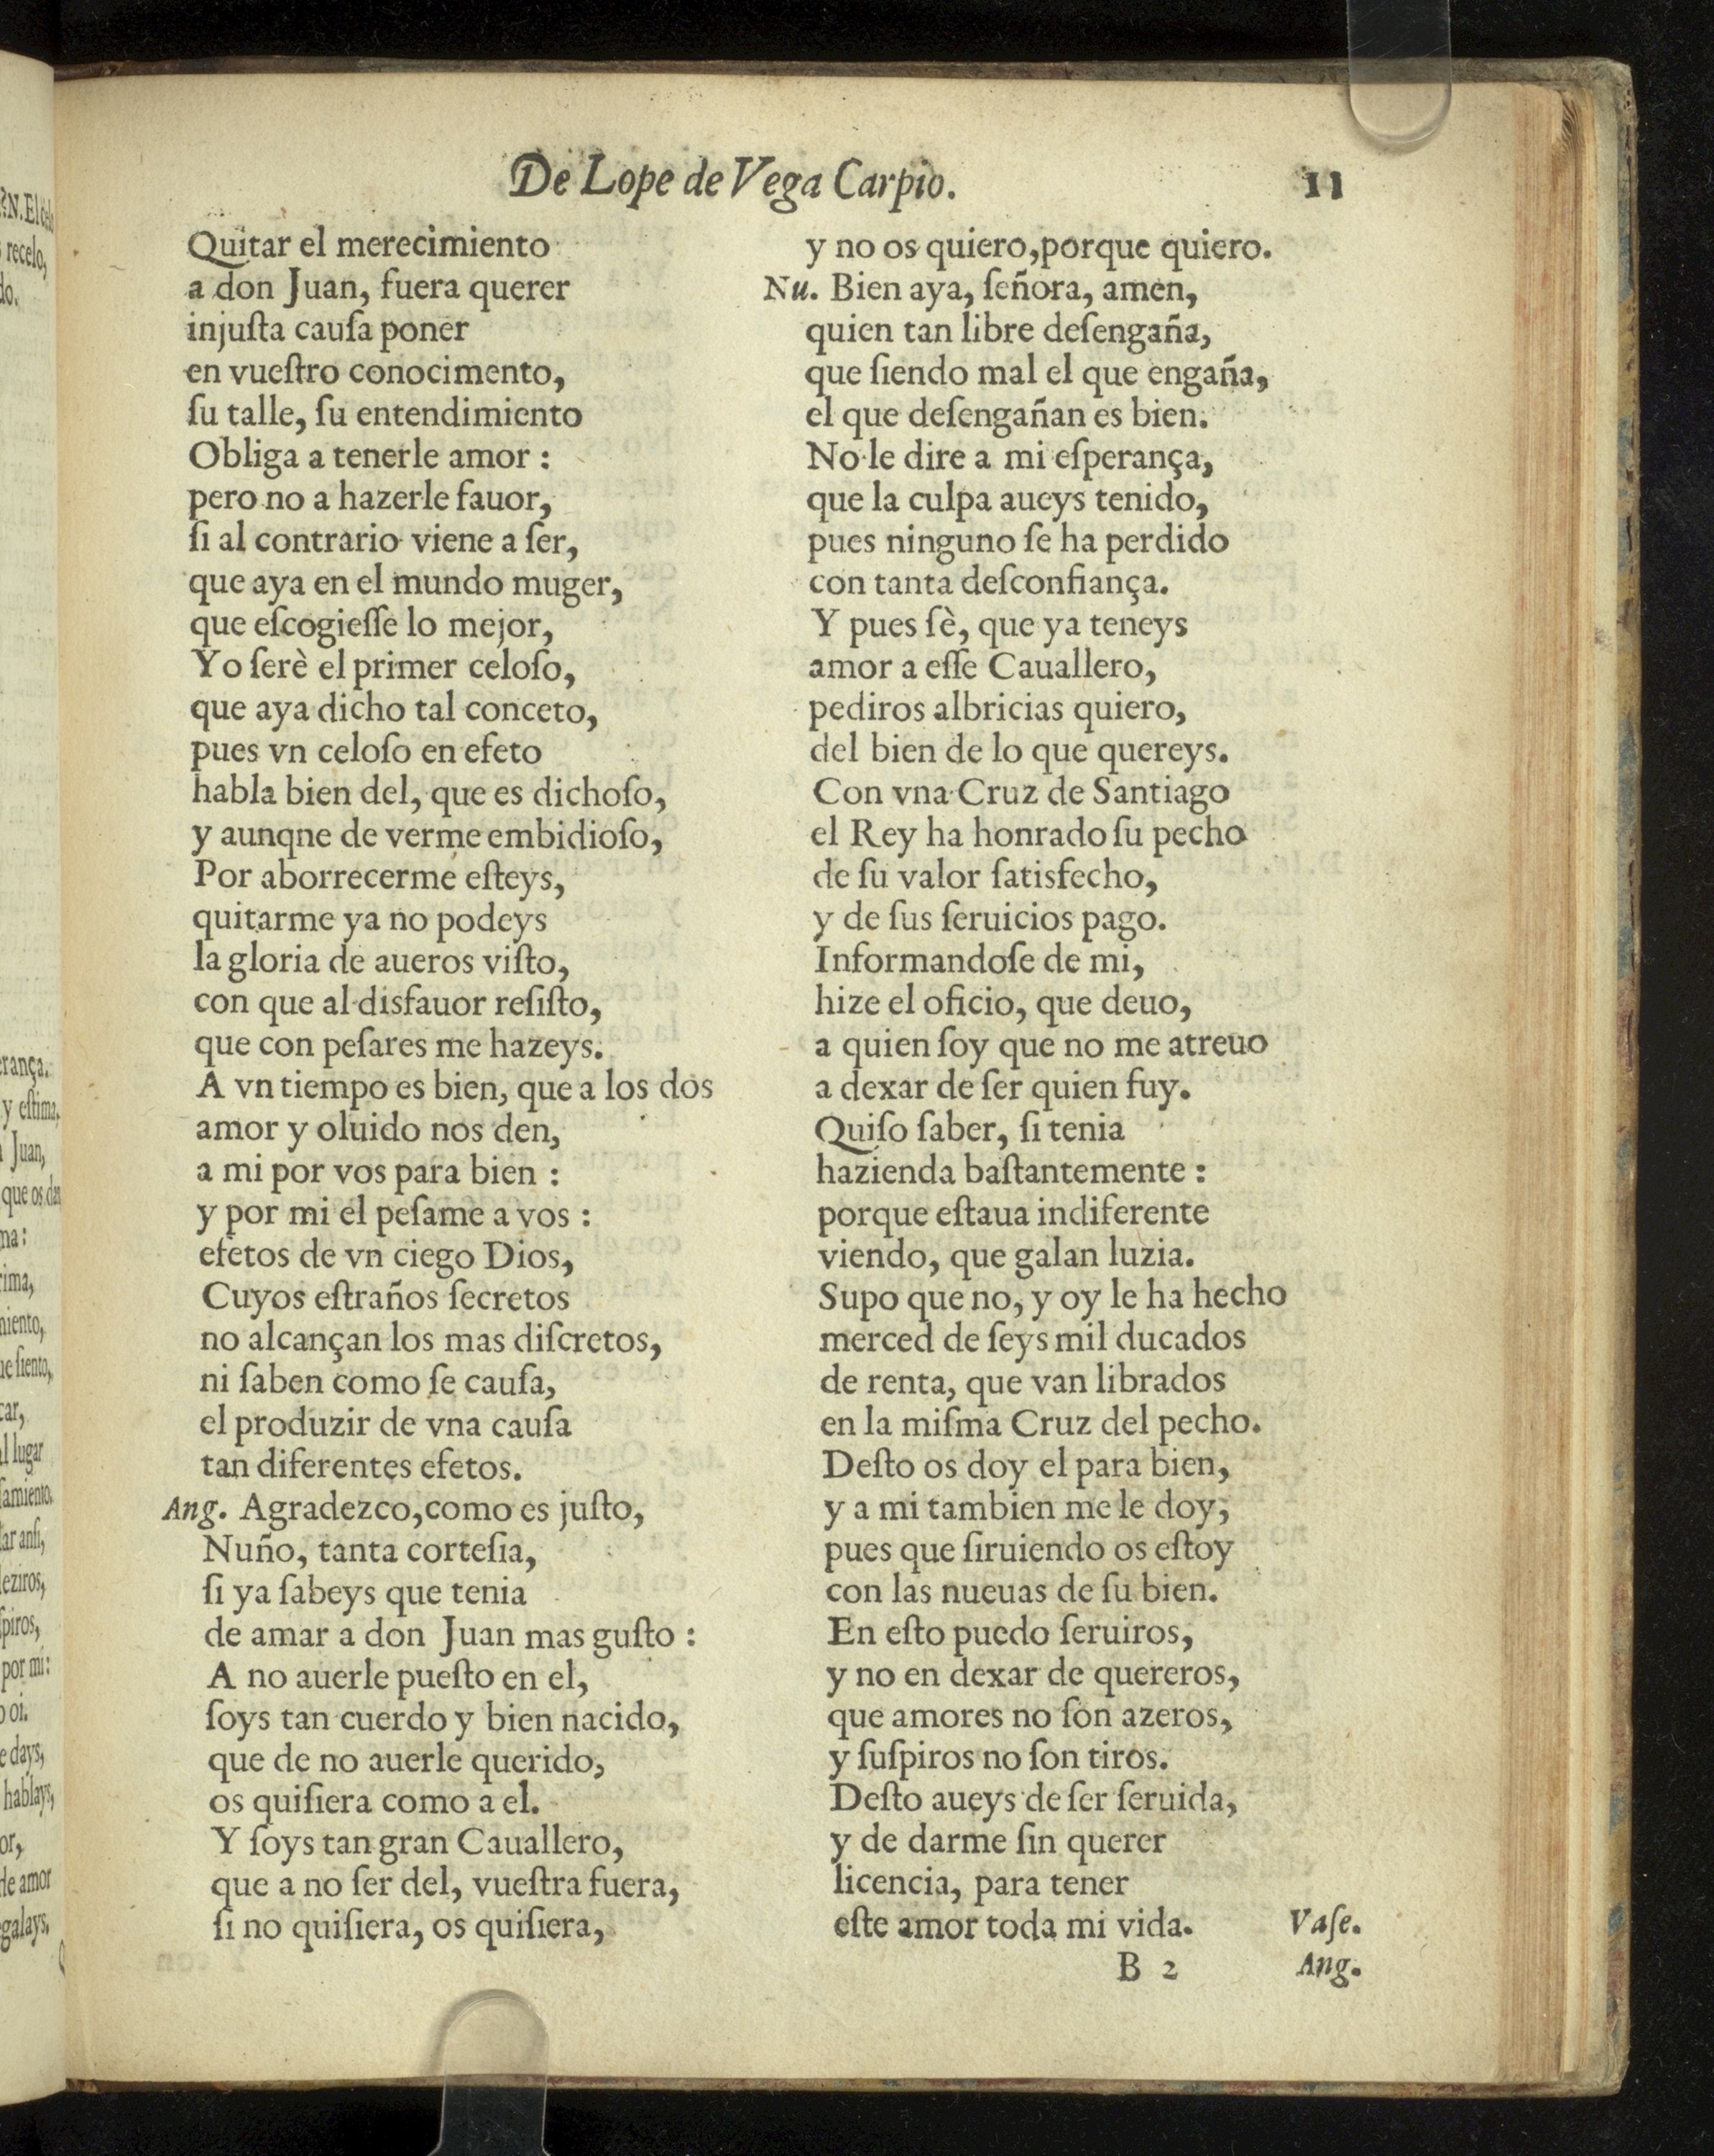 De Lope de Vega Carpio. 11
Quitar el merecimiento
a don Juan, fuera querer
injuſta cauſa poner
en vueſtro conocimento,
ſu talle, ſu entendimiento
Obliga a tenerle amor :
pero no a hazerle fauor,
ſi al contrario viene a ſer,
que aya en el mundo muger,
que eſcogieſſe lo mejor,
Yo ſerè el primer celoſo,
que aya dicho tal conceto,
pues vn celoſo en efeto
habla bien del, que es dichoſo,
y aunqne de verme embidioſo,
Por aborrecerme eſteys,
quitarme ya no podeys
la gloria de aueros viſto,
con que al disfauor reſiſto,
que con peſares me hazeys.
A vn tiempo es bien, que a los dos
amor y oluido nos den,
a mi por vos para bien :
y por mi el peſame a vos :
efetos de vn ciego Dios,
Cuyos eſtraños ſecretos
no alcançan los mas diſcretos,
ni ſaben como ſe cauſa,
el produzir de vna cauſa
tan diferentes efetos.
Ang. Agradezco,como es juſto,
Nuño, tanta corteſia,
ſi ya ſabeys que tenia
de amar a don Juan mas guſto :
A no auerle pueſto en el,
ſoys tan cuerdo y bien nacido,
que de no auerle querido,
os quiſiera como a el.
Y ſoys tan gran Cauallero,
que a no ſer del, vueſtra fuera,
ſi no quiſiera, os quiſiera,
y no os quiero,porque quiero.
Nu. Bien aya, ſeñora, amen,
quien tan libre deſengaña,
que ſiendo mal el que engaña,
el que deſengañan es bien.
No le dire a mi eſperança,
que la culpa aueys tenido,
pues ninguno ſe ha perdido
con tanta deſconfiança.
Y pues ſè, que ya teneys
amor a eſſe Cauallero,
pediros albricias quiero,
del bien de lo que quereys.
Con vna Cruz de Santiago
el Rey ha honrado ſu pecho
de ſu valor ſatisfecho,
y de ſus ſeruicios pago.
Informandoſe de mi,
hize el oficio, que deuo,
a quien ſoy que no me atreuo
a dexar de ſer quien fuy.
Quiſo ſaber, ſi tenia
hazienda baſtantemente :
porque eſtaua indiferente
viendo, que galan luzia.
Supo que no, y oy le ha hecho
merced de ſeys mil ducados
de renta, que van librados
en la miſma Cruz del pecho.
Deſto os doy el para bien,
y a mi tambien me le doy,
pues que ſiruiendo os eſtoy
con las nueuas de ſu bien.
En eſto puedo ſeruiros,
y no en dexar de quereros,
que amores no ſon azeros,
y ſuſpiros no ſon tiros.
Deſto aueys de ſer ſeruida,
y de darme ſin querer
licencia, para tener
eſte amor toda mi vida. Vaſe.
B 2 Ang.